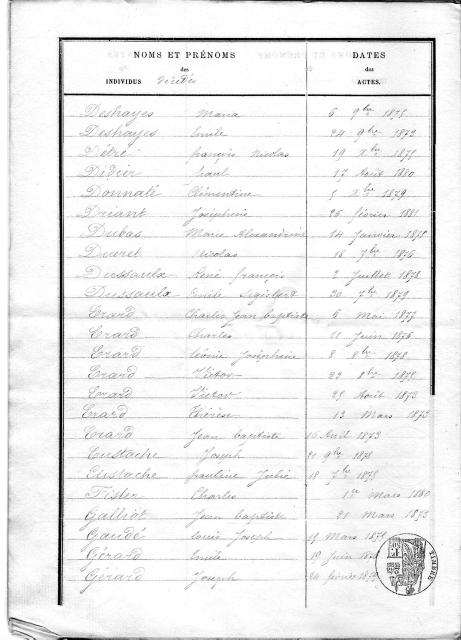 NOMS ET PRÉNOMS DATES
des des
INDIVIDUS Décédés ACTES.
Deshayes Maria 6 9bre 1875
Deshayes Emile 24 9bre 1872
Détré françois Nicolas 19 Xbre 1875
Didier paul 17 Août 1880
Donnalé Clémentine 5 Xbre 1879
Driant Joséphine 26 février 1881
Dubas Marie Alexandrine 14 Janvier 1878
Ducret Nicolas 18 7bre 1876
Dussaulx René françois 2 Juillet 1878
Dussaulx Emile 30 7bre 1872
Erard Charles Jean baptiste 6 mai 1877
Erard Charles 11 Juin 1876
Erard Léonie Joséphine 8 8bre 1878
Erard Victor 22 8bre 1875
Erard Victor 25 Août 1873
Erard thérèse 13 Mars 1873
Erard Jean baptiste 16 Avril 1873
Eustache Joseph 21 9bre 1878
Eustache pauline Julie 18 7bre 1875
Fister Charles 1er Mars 1880
Galliot Jean baptiste 21 Mars 1873
Gaudé Louis Joseph 15 Mars 1875
Gérard Emile 19 Juin
Gérard Joseph 24 février
TIMBRE